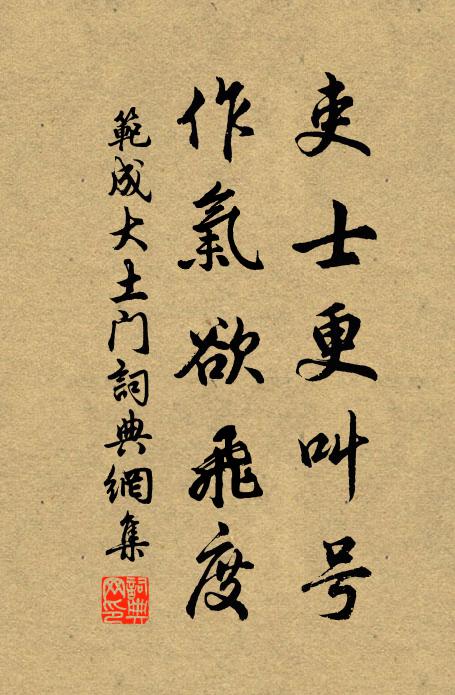 吏士更叫号
作氣欲飛度
範成大土門詞典網集
詞典网印